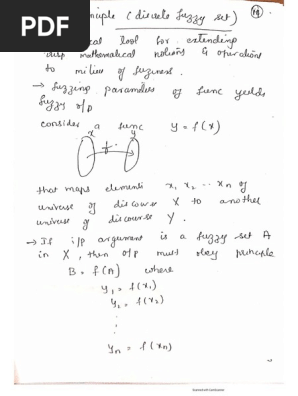 PDF
nciple (discrete fuzzy set)
cal tool for extending
crisp mathematical notions & operations
to milieu of fuzziness.
→ fuzzing parameters of func yields
fuzzy o/p
consider a func y = f(x)
x y
f
that maps elements x, x2 ... xn of
universe of discourse X to another
universe of discourse Y.
→ If i/p argument is a fuzzy set A
in X, then o/p must obey principle
B = f(A) where
y1 = f(x1)
y2 = f(x2)
yn = f(xn)